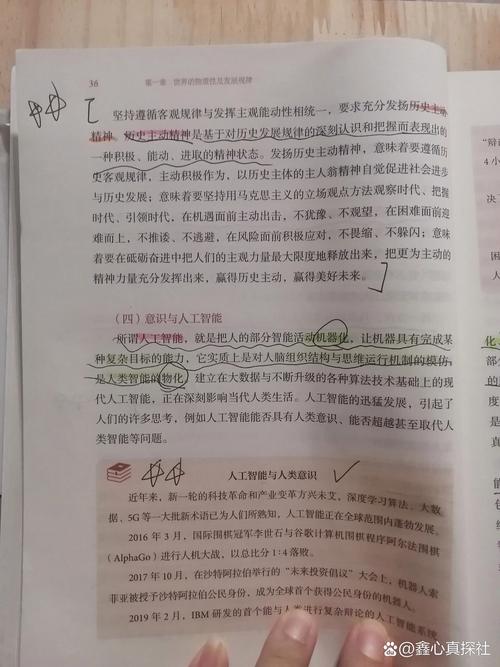 36 第一章 世界的物质性及发展规律
坚持遵循客观规律与发挥主观能动性相统一，要求充分发扬历史主动
精神。历史主动精神是基于对历史发展规律的深刻认识和把握而表现出的
一种积极、能动、进取的精神状态。发扬历史主动精神，意味着要遵循历
史客观规律，主动积极作为，以历史主体的主人翁精神自觉促进社会进步
与历史发展；意味着要坚持用马克思主义的立场观点方法观察时代、把握
时代、引领时代，在机遇面前主动出击，不犹豫、不观望，在困难面前迎
难而上，不推诿、不逃避，在风险面前积极应对，不畏缩、不躲闪；意味
着要在砥砺奋进中把人们的主观力量最大限度地释放出来，把更为主动的
精神力量充分发挥出来，赢得历史主动，赢得美好未来。
（四）意识与人工智能
所谓人工智能，就是把人的部分智能活动机器化，让机器具有完成某
种复杂目标的能力，它实质上是对人脑组织结构与思维运行机制的模仿，
是人类智能的物化。建立在大数据与不断升级的各种算法技术基础上的现
代人工智能，正在深刻影响当代人类生活。人工智能的迅猛发展，引起了
人们的许多思考，例如人工智能能否具有人类意识、能否超越甚至取代人
类智能等问题。
人工智能与人类意识
近年来，新一轮的科技革命和产业变革方兴未艾，深度学习算法、大数
据、5G等一大批新术语已为人们所熟知，人工智能正在全球范围内蓬勃发展。
2016年3月，国际围棋冠军李世石与谷歌计算机围棋程序阿尔法围棋
（AlphaGo）进行人机大战，以总比分1∶4落败。
2017年10月，在沙特阿拉伯举行的“未来投资倡议”大会上，机器人索
菲亚被授予沙特阿拉伯公民身份，成为全球首个获得公民身份的机器人。
2019年2月，IBM研发的首个能与人类进行复杂辩论的人工智能系统
“辩
4小
决
化、
鑫心真探社